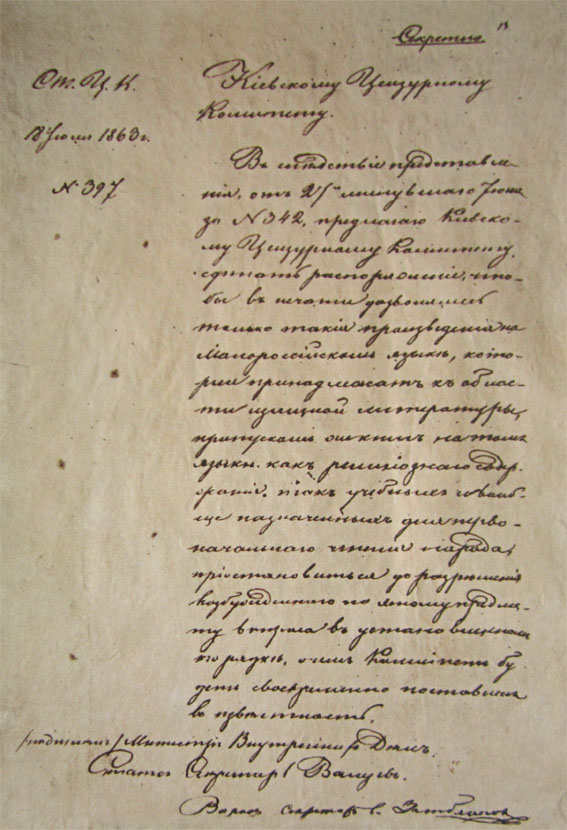 Секретно
Ст. Ц. К.
18 Іюля 1863 г.
№ 397
Кіевскому Цензурному
Комитету.
Въ слѣдствіе представле
нія, отъ 27 минувшаго Іюня
за № 342, предлагаю Кіевско-
му Цензурному Комитету,
сдѣлать распоряженіе, что-
бы въ печати дозволялись
только такія произведенія на
Малороссійскомъ языкѣ, кото-
рыя принадлежатъ къ облас-
ти изящной литературы;
пропускомъ же книгъ на томъ
языкѣ какъ религіознаго содер-
жанія, такъ учебныхъ и вооб-
ще назначенныхъ для перво-
начальнаго чтенія народа,
пріостановиться до разрѣшенія
возбужденнаго по этому предме-
ту вопроса въ установленномъ
порядкѣ, о чемъ Комитетъ бу
детъ своевременно поставленъ
въ извѣстность.
/подписалъ/ Министръ Внутреннихъ Дѣлъ,
Статсъ Секретарь Валуевъ.
секретарь